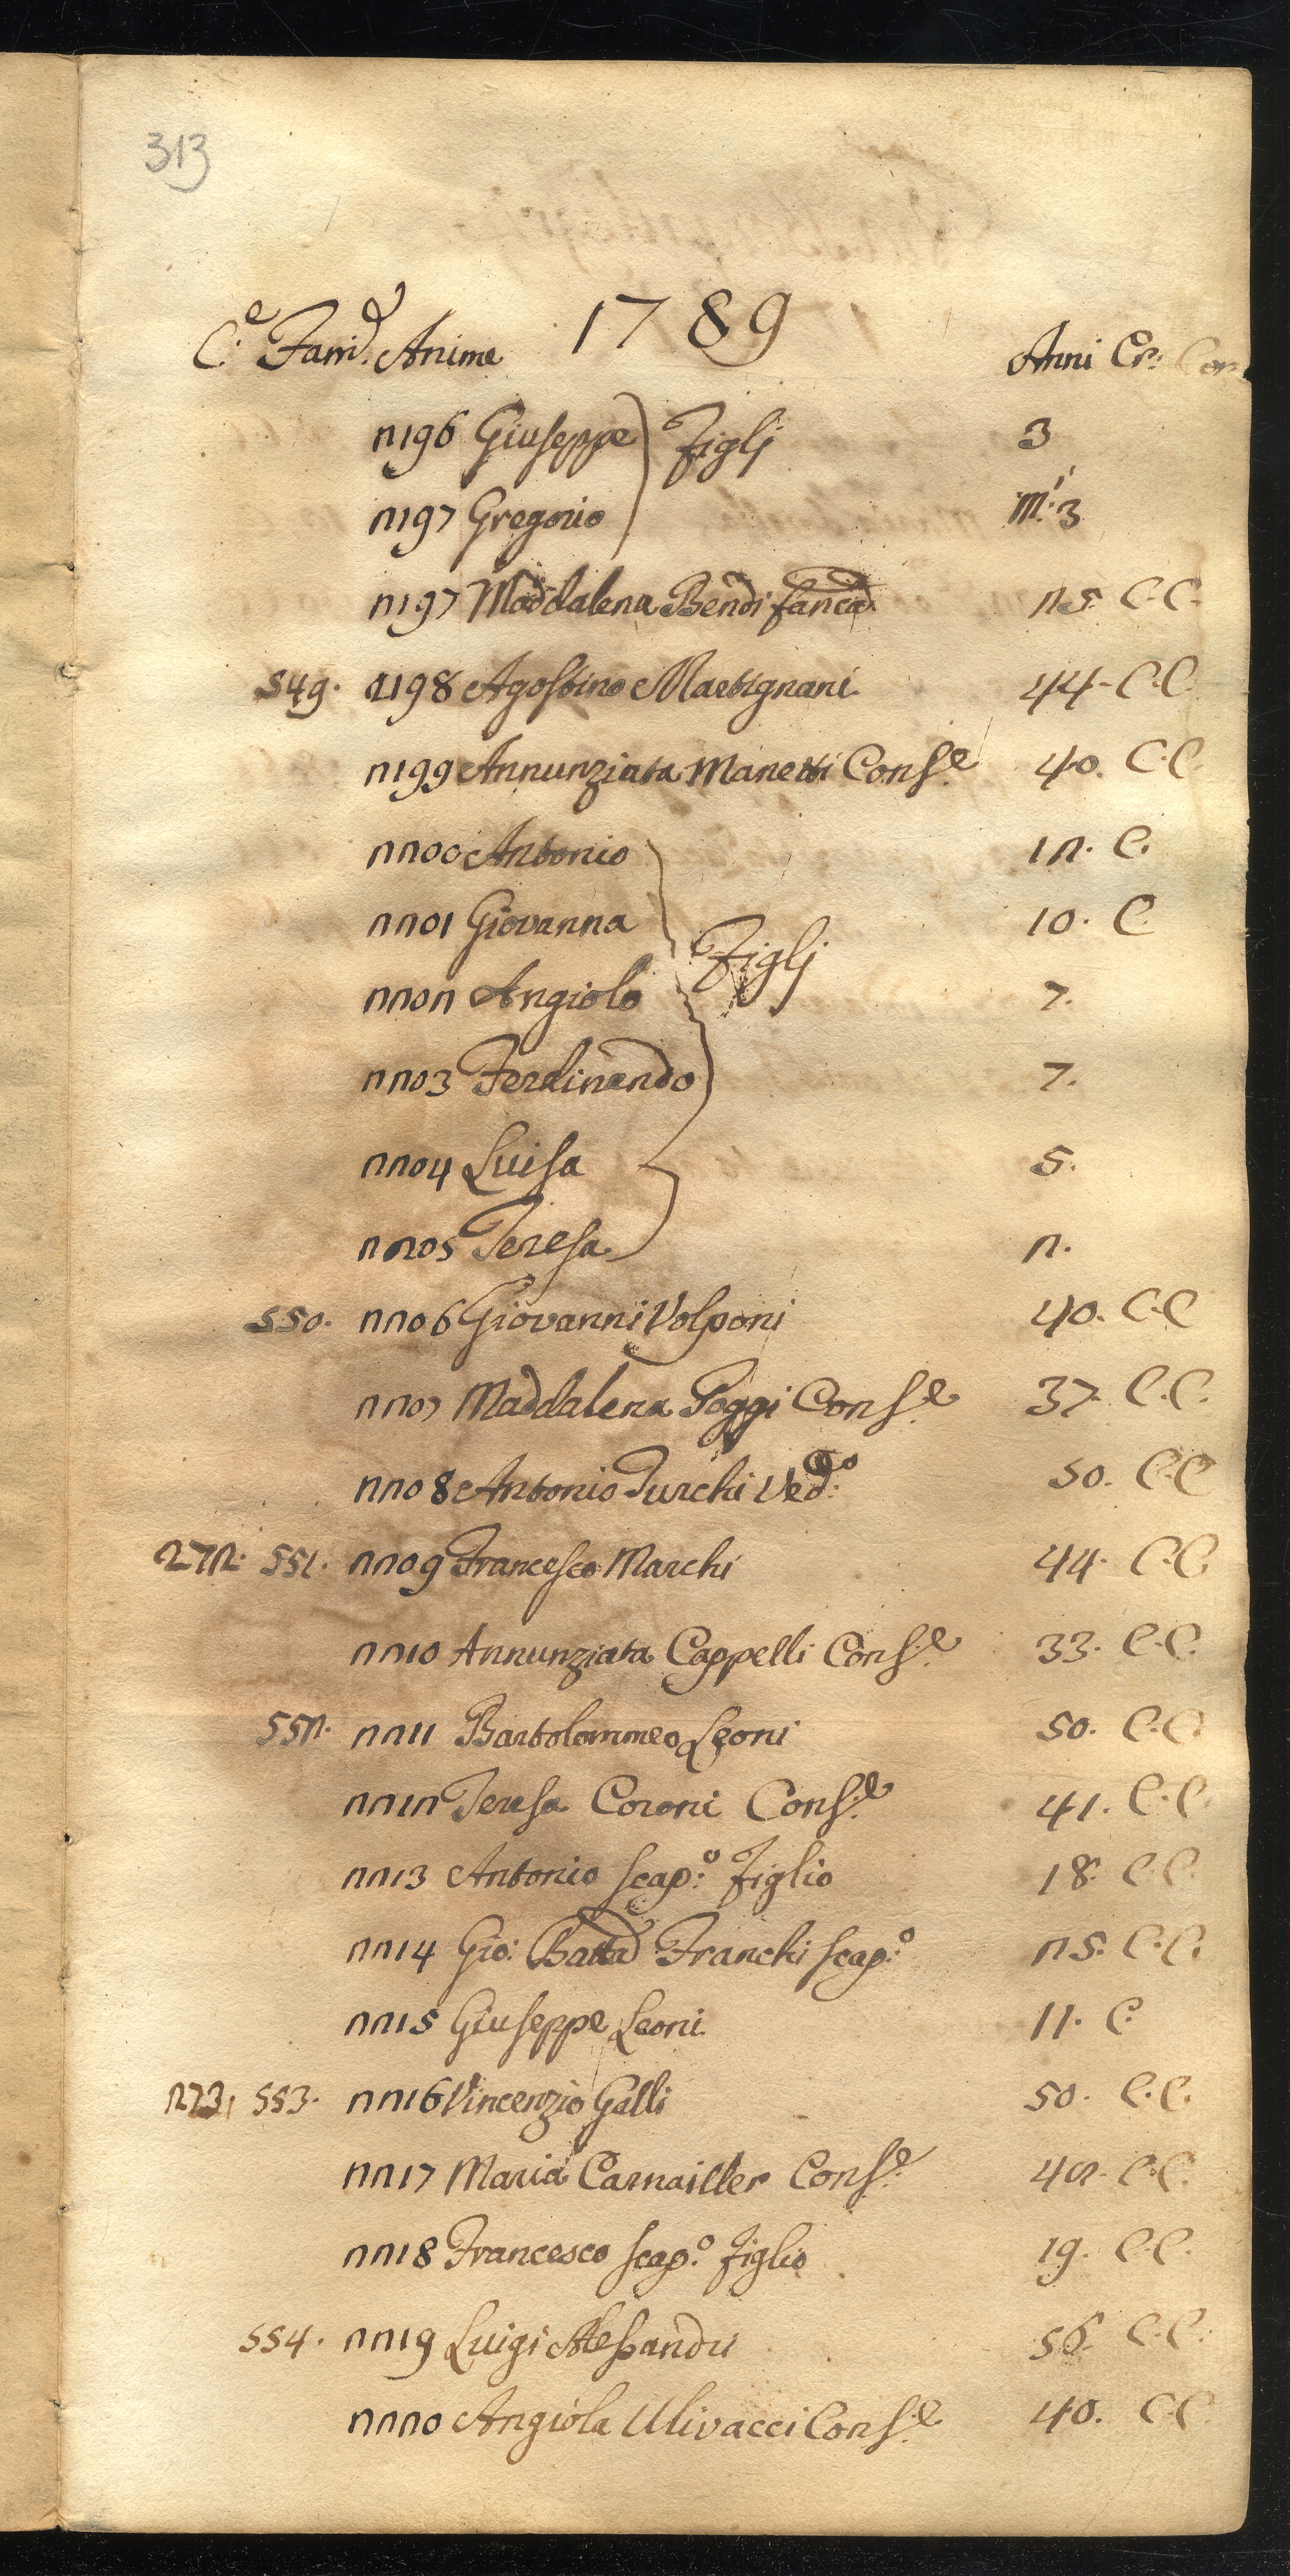 313
1789
C.e Fam.e Anime Anni Cr: Com
2196 Giuseppe } Figlj 3
2197 Gregorio M.i 3
2197 Maddalena Bendi fanc.a 25. C.C.
549. 2198 Agostino Martignani 44. C.C.
2199 Annunziata Manetti Cons.e 40. C.C.
2200 Antonio 12. C.
2201 Giovanna 10. C.
2202 Angiolo } Figlj 7.
2203 Ferdinando 7.
2204 Luisa 5.
2205 Teresa 2.
550. 2206 Giovanni Volponi 40. C.C.
2207 Maddalena Poggi Cons.e 37. C.C.
2208 Antonio Turchi Ved.o 50. C.C.
272. 551. 2209 Francesco Marchi 44. C.C.
2210 Annunziata Cappelli Cons.e 33. C.C.
552. 2211 Bartolommeo Leoni 50. C.C.
2212 Teresa Coroni Cons.e 41. C.C.
2213 Antonio scap.o Figlio 18. C.C.
2214 Gio: Batta Franchi scap.o 25. C.C.
2215 Giuseppe Leoni 11. C.
273. 553. 2216 Vincenzio Galli 50. C.C.
2217 Maria Carnailler Cons.e 42. C.C.
2218 Francesco scap.o figlio 19. C.C.
554. 2219 Luigi Alessandri 56. C.C.
2220 Angiola Ulivacci Cons.e 40. C.C.